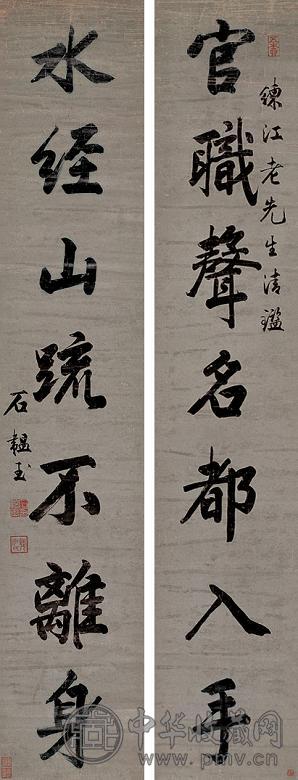 官職聲名都入手
練江老先生清鑑
水经山疏不離身
石韞玉
中华收藏网
www.pmv.cn